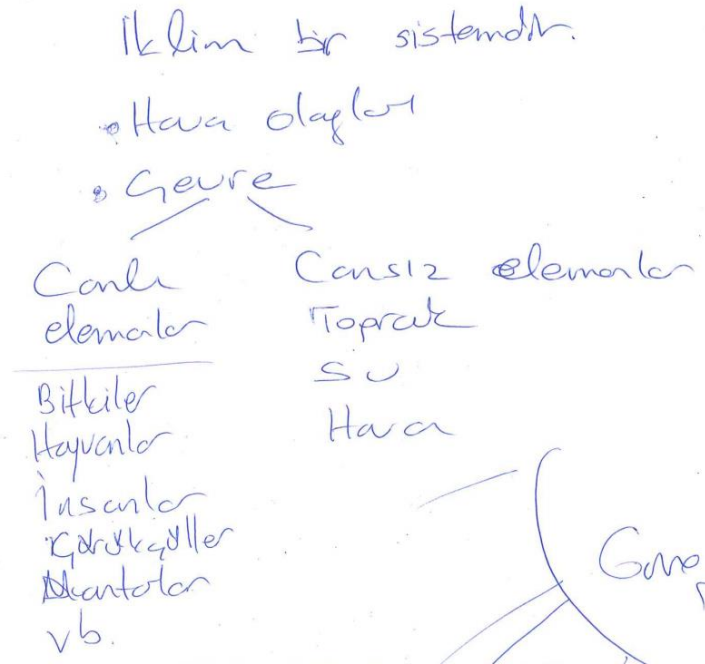 İklim bir sistemdir.
• Hava olayları
• Çevre
Canlı
elemanlar
Bitkiler
Hayvanlar
İnsanlar
vb.
Cansız elemanlar
Toprak
Su
Hava
Güneş